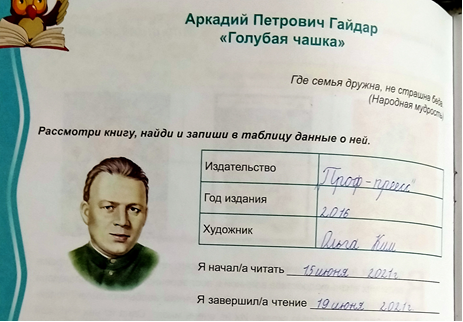 Аркадий Петрович Гайдар
«Голубая чашка»
Где семья дружна, не страшна беда.
(Народная мудрость)
Рассмотри книгу, найди и запиши в таблицу данные о ней.
Издательство „Проф-пресс"
Год издания 2016
Художник Ольга Ким
Я начал/а читать 15 июня 2021г
Я завершил/а чтение 19 июня 2021г